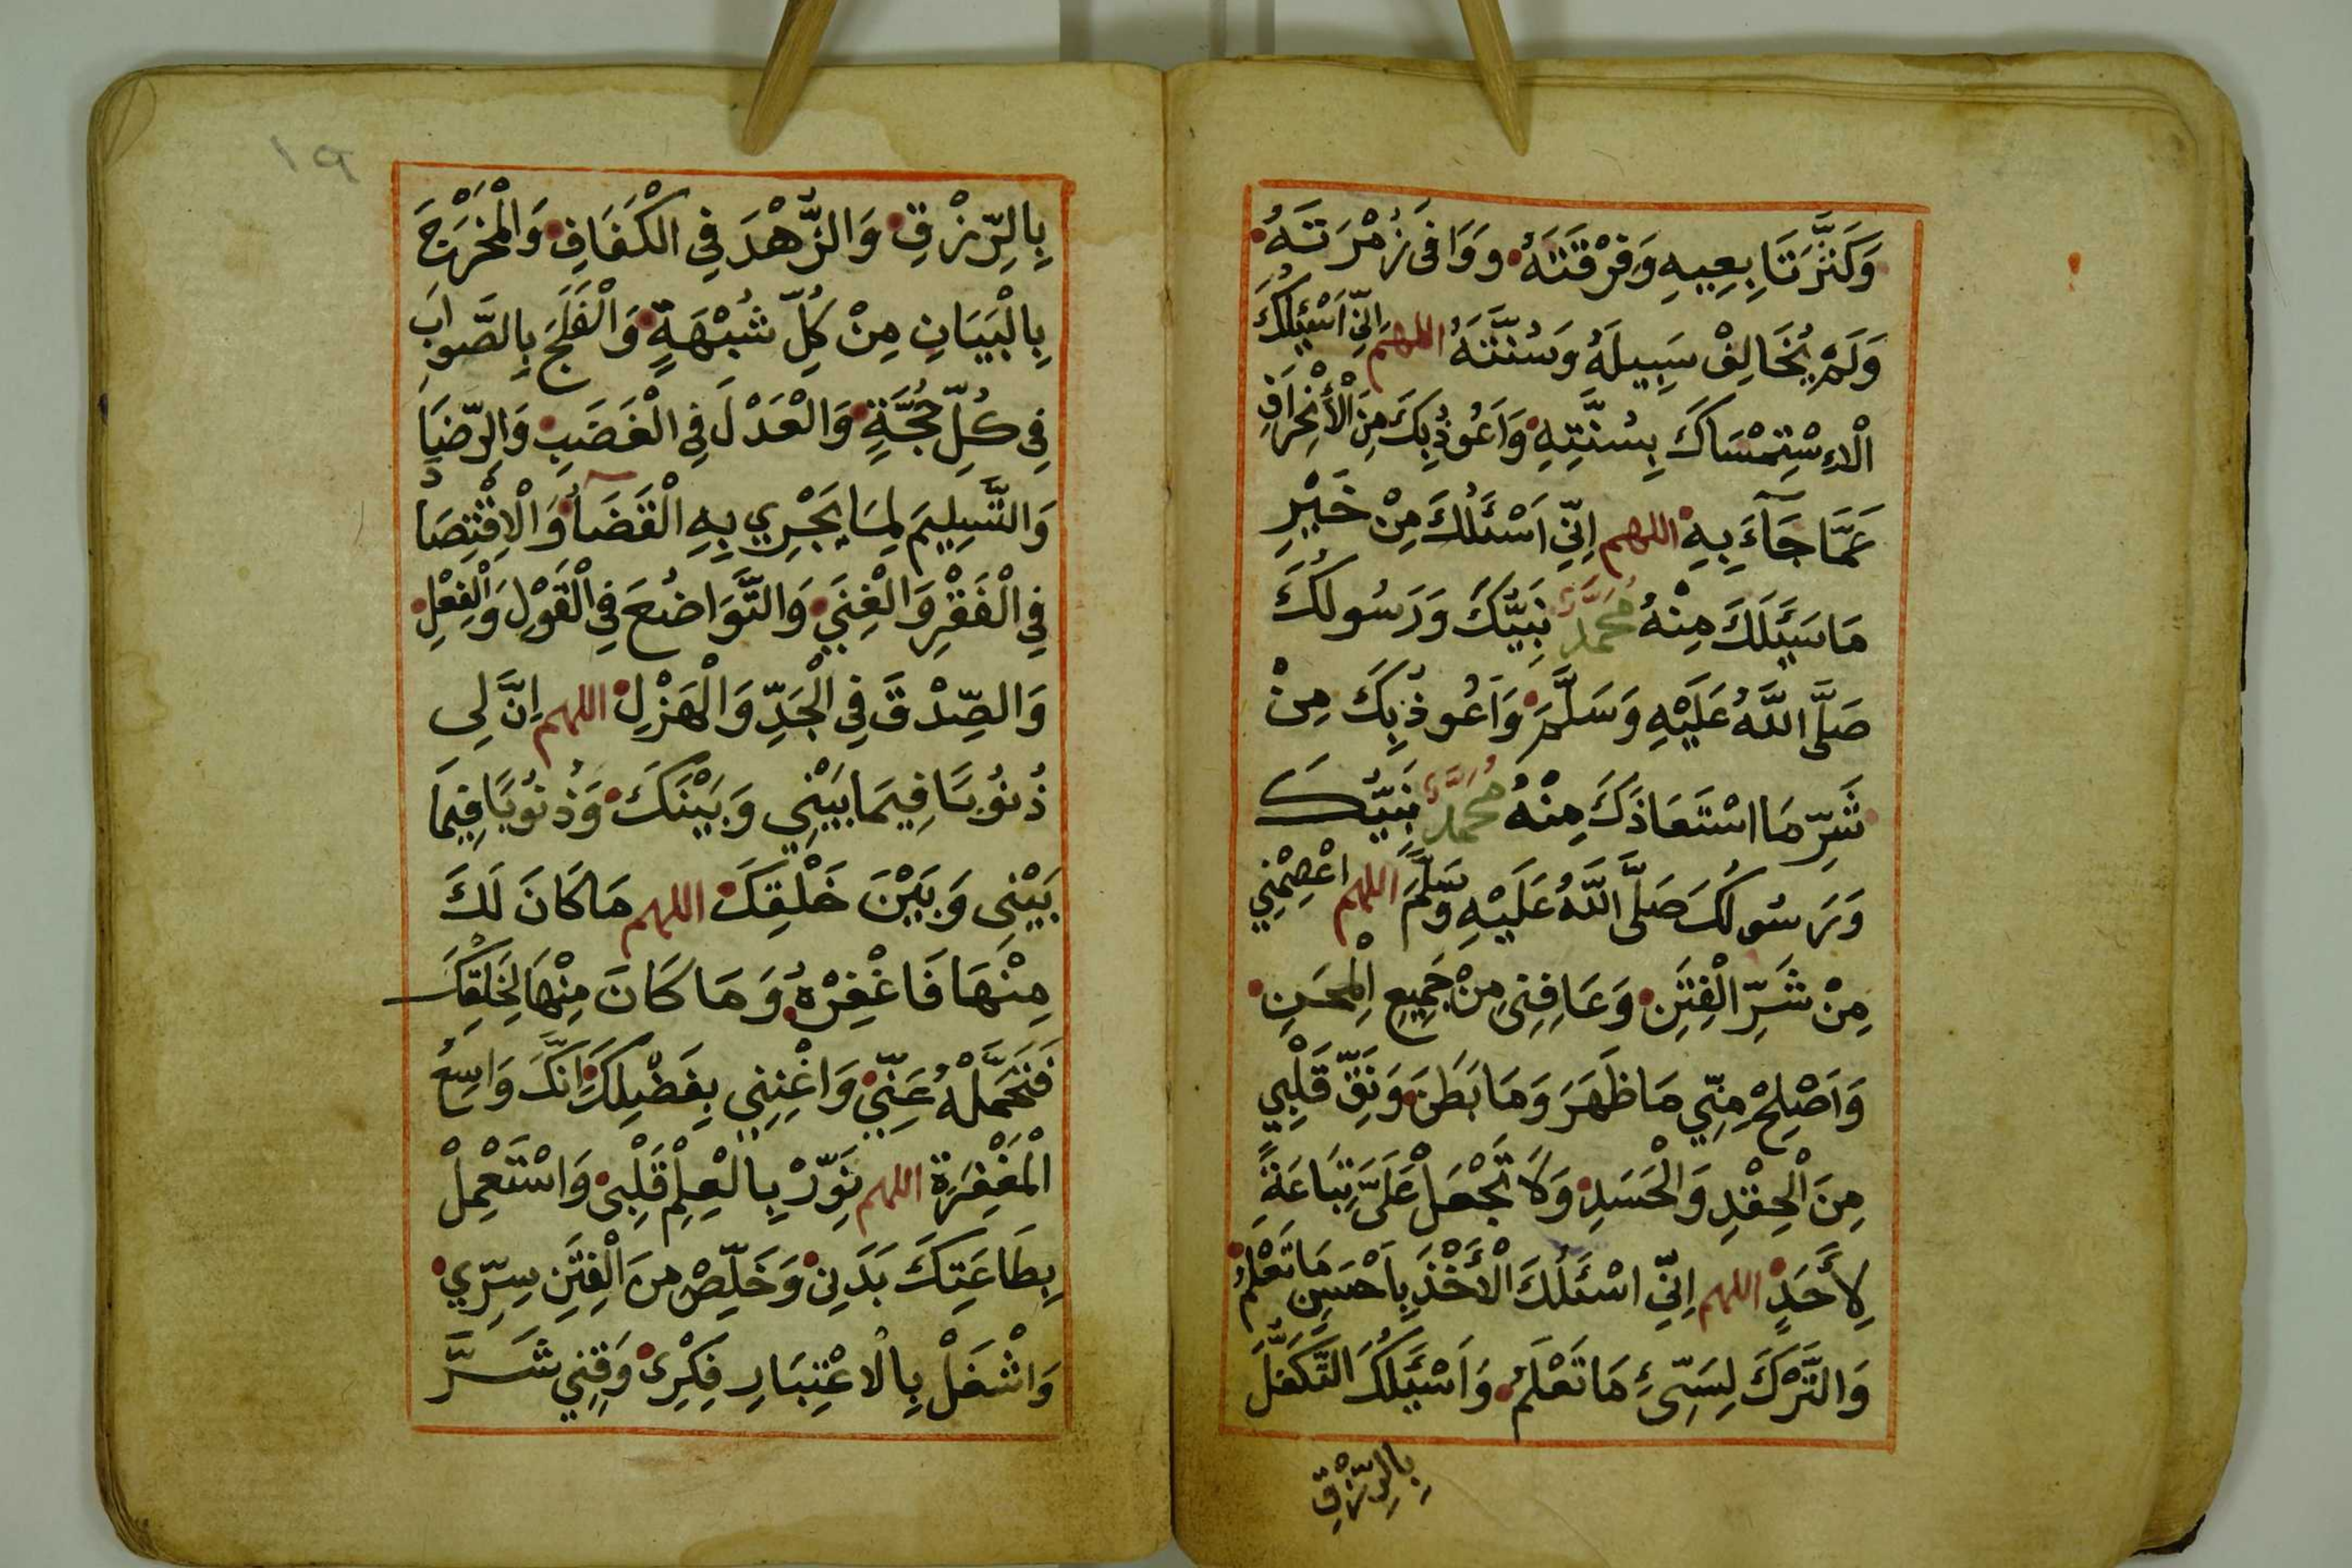 وَكَثَّرَ تَابِعِيهِ وَفِرْقَتَهُ وَوَافَى زُمْرَتَهُ
وَلَمْ يُخَالِفْ سَبِيلَهُ وَسُنَّتَهُ اللهم اِنِّي اَسْئَلُكَ
الْاِسْتِمْسَاكَ بِسُنَّتِهِ وَاَعُوذُ بِكَ مِنَ الْأِنْحِرَافِ
عَمَّا جَآءَ بِهِ اللهم اِنِّي اَسْئَلُكَ مِنْ خَيْرِ
مَا سَئَلَكَ مِنْهُ مُحَمَّدٌ نَبِيُّكَ وَرَسُولُكَ
صَلَّى اللَّهُ عَلَيْهِ وَسَلَّمَ وَاَعُوذُ بِكَ مِنْ
شَرِّ مَا اسْتَعَاذَكَ مِنْهُ مُحَمَّدٌ نَبِيُّكَ
وَرَسُولُكَ صَلَّى اللَّهُ عَلَيْهِ وَسَلَّمَ اللهم اعْصِمْنِي
مِنْ شَرِّ الْفِتَنِ وَعَافِنِي مِنْ جَمِيعِ الْمِحَنِ
وَاَصْلِحْ مِنِّي مَا ظَهَرَ وَمَا بَطَنَ وَنَقِّ قَلْبِي
مِنَ الْحِقْدِ وَالْحَسَدِ وَلَا تَجْعَلْ عَلَيَّ تِبَاعَةً
لِأَحَدٍ اللهم اِنِّي اسْئَلُكَ الْأَخْذَ بِاَحْسَنِ مَا تَعْلَمُ
وَالتَّرْكَ لِسَيِّءِ مَا تَعْلَمُ وَاَسْئَلُكَ التَّكَفُّلَ
بِالرِّزْقِ
١٩
بِالرِّزْقِ وَالزُّهْدَ فِي الْكَفَافِ وَالْمَخْرَجَ
بِالْبَيَانِ مِنْ كُلِّ شُبْهَةٍ وَالْفَلَجَ بِالصَّوَابِ
فِي كُلِّ حُجَّةٍ وَالْعَدْلَ فِي الْغَضَبِ وَالرِّضَا
وَالتَّسْلِيمَ لِمَا يَجْرِي بِهِ الْقَضَآءُ وَالْاِقْتِصَادَ
فِي الْفَقْرِ وَالْغِنَي وَالتَّوَاضُعَ فِي الْقَوْلِ وَالْفِعْلِ
وَالصِّدْقَ فِي الْجَدِّ وَالْهَزْلِ اللهم اِنَّ لِي
ذُنُوبًا فِيمَا بَيْنِي وَبَيْنَكَ وَذُنُوبًا فِيمَا
بَيْنِي وَبَيْنَ خَلْقِكَ اللهم مَا كَانَ لَكَ
مِنْهَا فَاغْفِرْهُ وَمَا كَانَ مِنْهَا لِخَلْقِكَ
فَتَحَمَّلْهُ عَنِّي وَاغْنِنِي بِفَضْلِكَ اِنَّكَ وَاسِعُ
الْمَغْفِرَةِ اللهم نَوِّرْ بِالْعِلْمِ قَلْبِي وَاسْتَعْمِلْ
بِطَاعَتِكَ بَدَنِي وَخَلِّصْ مِنَ الْفِتَنِ سِرِّي
وَاشْغَلْ بِالْاعْتِبَارِ فِكْرِي وَقِنِي شَرَّ